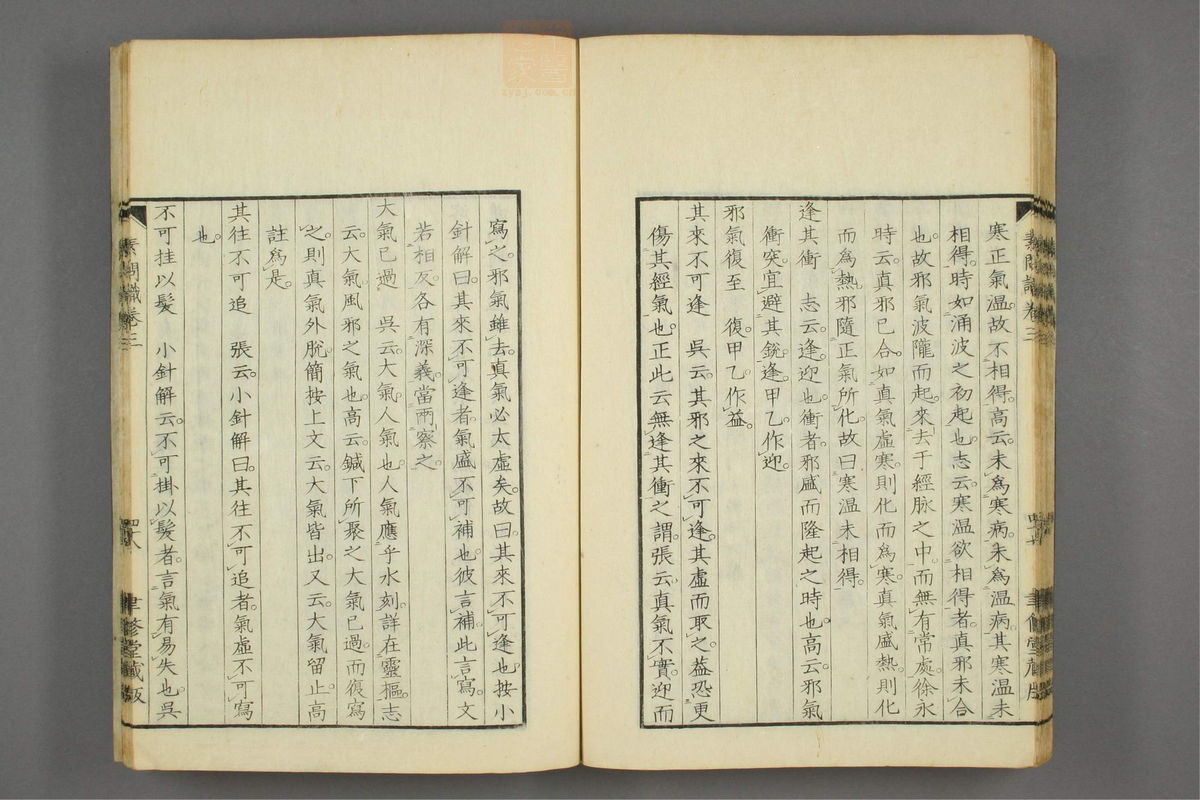 寒正氣温。故不相得。高云。未爲寒病。未爲温病。其寒温未
相得。時如涌波之初起也。志云。寒温欲相得者。真邪未合
也。故邪氣波隴而起。來去于經脉之中。而無有常處。徐永
時云。真邪已合。如真氣虛寒。則化而爲寒。真氣盛熱。則化
而爲熱。邪隨正氣所化。故曰寒温未相得。
逢其衝　志云。逢。迎也。衝者。邪盛而隆起之時也。高云。邪氣
衝突。宜避其銳。逢。甲乙作迎。
邪氣復至　復。甲乙作益。
其來不可逢　吳云。其邪之來不可逢。其虛而取之。益恐更
傷其經氣也。正此云無逢其衝之謂。張云。真氣不實。迎而
寫之。邪氣雖去。真氣必太虛矣。故曰。其來不可逢也。按小
針解曰。其來不可逢者。氣盛不可補也。彼言補。此言寫。文
若相反。各有深義。當兩察之。
大氣已過　吳云。大氣。人氣也。人氣應乎水刻。詳在靈樞。志
云。大氣。風邪之氣也。高云。鍼下所聚之大氣已過。而復寫
之。則真氣外脫。簡按上文云。大氣皆出。又云。大氣留止。高
註爲是。
其往不可追　張云。小針解曰。其往不可追者。氣虛不可寫
也。
不可挂以髮　小針解云。不可掛以髮者。言氣有易失也。吳
素問識卷三　四八　聿修堂藏版